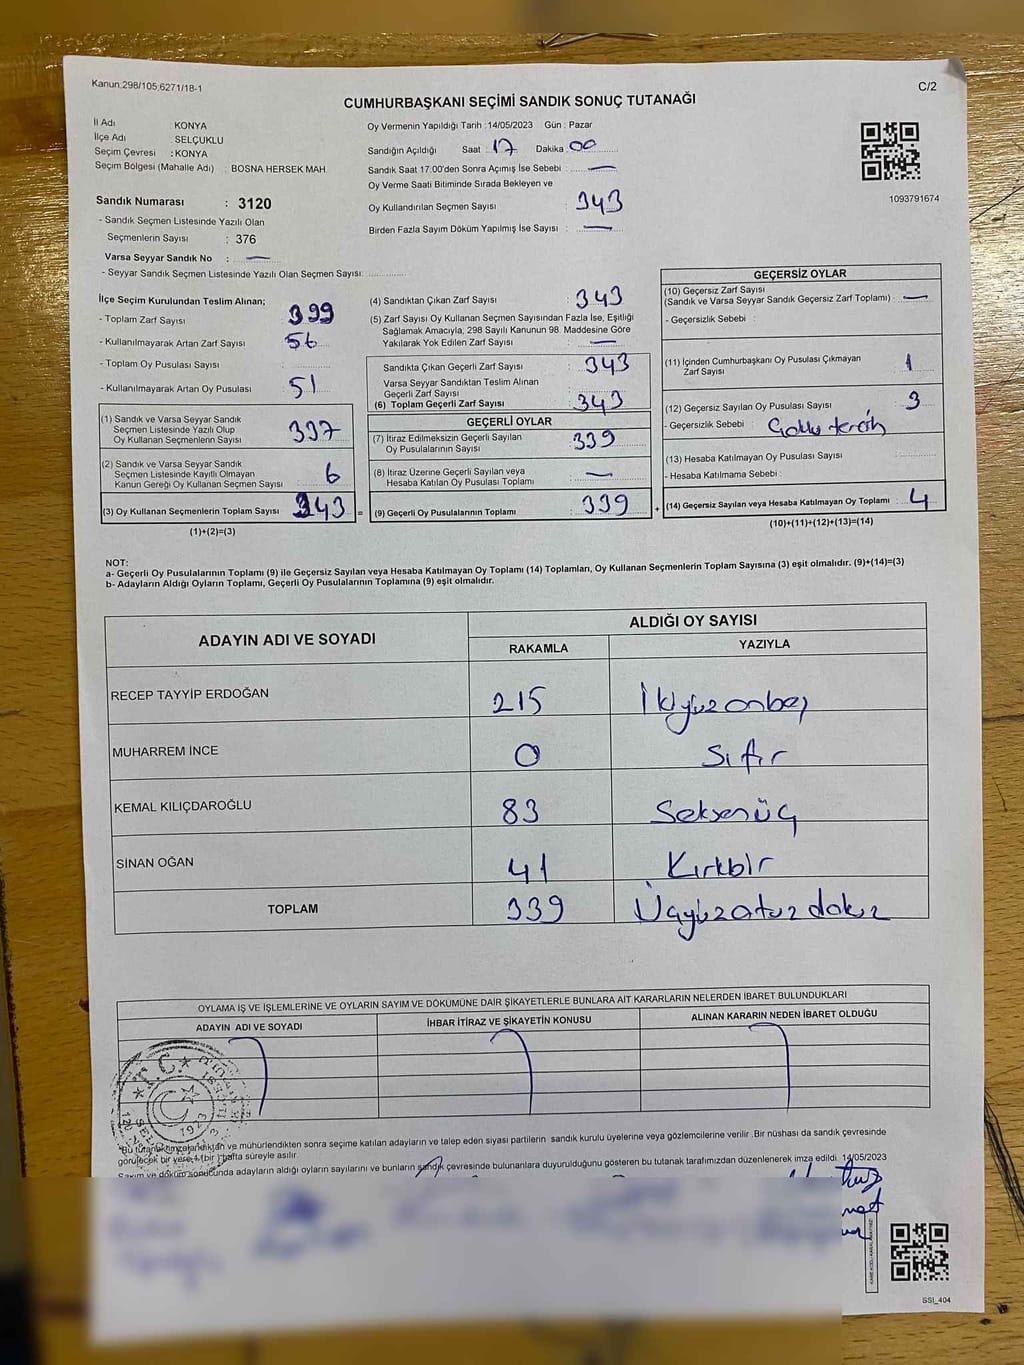 Kanun:298/105,6271/18-1
C/2
CUMHURBAŞKANI SEÇİMİ SANDIK SONUÇ TUTANAĞI
İl Adı : KONYA
İlçe Adı : SELÇUKLU
Seçim Çevresi : KONYA
Seçim Bölgesi (Mahalle Adı) : BOSNA HERSEK MAH.
Oy Vermenin Yapıldığı Tarih :14/05/2023 Gün : Pazar
Sandığın Açıldığı Saat : 17 Dakika : 00
Sandık Saat 17:00'den Sonra Açımış İse Sebebi : —
Oy Verme Saati Bitiminde Sırada Bekleyen ve
Oy Kullandırılan Seçmen Sayısı : 343
Birden Fazla Sayım Döküm Yapılmış İse Sayısı : —
1093791674
Sandık Numarası : 3120
- Sandık Seçmen Listesinde Yazılı Olan
Seçmenlerin Sayısı : 376
Varsa Seyyar Sandık No : —
- Seyyar Sandık Seçmen Listesinde Yazılı Olan Seçmen Sayısı:
İlçe Seçim Kurulundan Teslim Alınan;
- Toplam Zarf Sayısı : 399
- Kullanılmayarak Artan Zarf Sayısı : 56
- Toplam Oy Pusulası Sayısı :
- Kullanılmayarak Artan Oy Pusulası : 51
(1) Sandık ve Varsa Seyyar Sandık
Seçmen Listesinde Yazılı Olup
Oy Kullanan Seçmenlerin Sayısı : 337
(2) Sandık ve Varsa Seyyar Sandık
Seçmen Listesinde Kayıtlı Olmayan
Kanun Gereği Oy Kullanan Seçmen Sayısı : 6
(3) Oy Kullanan Seçmenlerin Toplam Sayısı : 343 =
(1)+(2)=(3)
(4) Sandıktan Çıkan Zarf Sayısı : 343
(5) Zarf Sayısı Oy Kullanan Seçmen Sayısından Fazla İse, Eşitliği
Sağlamak Amacıyla, 298 Sayılı Kanunun 98. Maddesine Göre
Yakılarak Yok Edilen Zarf Sayısı : —
Sandıkta Çıkan Geçerli Zarf Sayısı : 343
Varsa Seyyar Sandıktan Teslim Alınan
Geçerli Zarf Sayısı :
(6) Toplam Geçerli Zarf Sayısı : 343
GEÇERLİ OYLAR
(7) İtiraz Edilmeksizin Geçerli Sayılan
Oy Pusulalarının Sayısı : 339
(8) İtiraz Üzerine Geçerli Sayılan veya
Hesaba Katılan Oy Pusulası Toplamı : —
(9) Geçerli Oy Pusulalarının Toplamı : 339 +
GEÇERSİZ OYLAR
(10) Geçersiz Zarf Sayısı
(Sandık ve Varsa Seyyar Sandık Geçersiz Zarf Toplamı) : —
- Geçersizlik Sebebi :
(11) İçinden Cumhurbaşkanı Oy Pusulası Çıkmayan
Zarf Sayısı : 1
(12) Geçersiz Sayılan Oy Pusulası Sayısı : 3
- Geçersizlik Sebebi :
(13) Hesaba Katılmayan Oy Pusulası Sayısı :
- Hesaba Katılmama Sebebi :
(14) Geçersiz Sayılan veya Hesaba Katılmayan Oy Toplamı : 4
(10)+(11)+(12)+(13)=(14)
NOT:
a- Geçerli Oy Pusulalarının Toplamı (9) ile Geçersiz Sayılan veya Hesaba Katılmayan Oy Toplamı (14) Toplamları, Oy Kullanan Seçmenlerin Toplam Sayısına (3) eşit olmalıdır. (9)+(14)=(3)
b- Adayların Aldığı Oyların Toplamı, Geçerli Oy Pusulalarının Toplamına (9) eşit olmalıdır.
ADAYIN ADI VE SOYADI
ALDIĞI OY SAYISI
RAKAMLA YAZIYLA
RECEP TAYYİP ERDOĞAN 215 İkiyüzonbeş
MUHARREM İNCE 0 Sıfır
KEMAL KILIÇDAROĞLU 83 Seksenüç
SİNAN OĞAN 41 Kırkbir
TOPLAM 339 Üçyüzotuzdokuz
OYLAMA İŞ VE İŞLEMLERİNE VE OYLARIN SAYIM VE DÖKÜMÜNE DAİR ŞİKAYETLERLE BUNLARA AİT KARARLARIN NELERDEN İBARET BULUNDUKLARI
ADAYIN ADI VE SOYADI İHBAR İTİRAZ VE ŞİKAYETİN KONUSU ALINAN KARARIN NEDEN İBARET OLDUĞU
T.C.
1923
*Bu tutanak imzalandıktan ve mühürlendikten sonra seçime katılan adayların ve talep eden siyasi partilerin sandık kurulu üyelerine veya gözlemcilerine verilir .Bir nüshası da sandık çevresinde
görülecek bir yere 1 (bir ) hafta süreyle asılır.
Sayım ve döküm sonucunda adayların aldığı oyların sayılarını ve bunların sandık çevresinde bulunanlara duyurulduğunu gösteren bu tutanak tarafımızdan düzenlenerek imza edildi. 14/05/2023
SSI_404